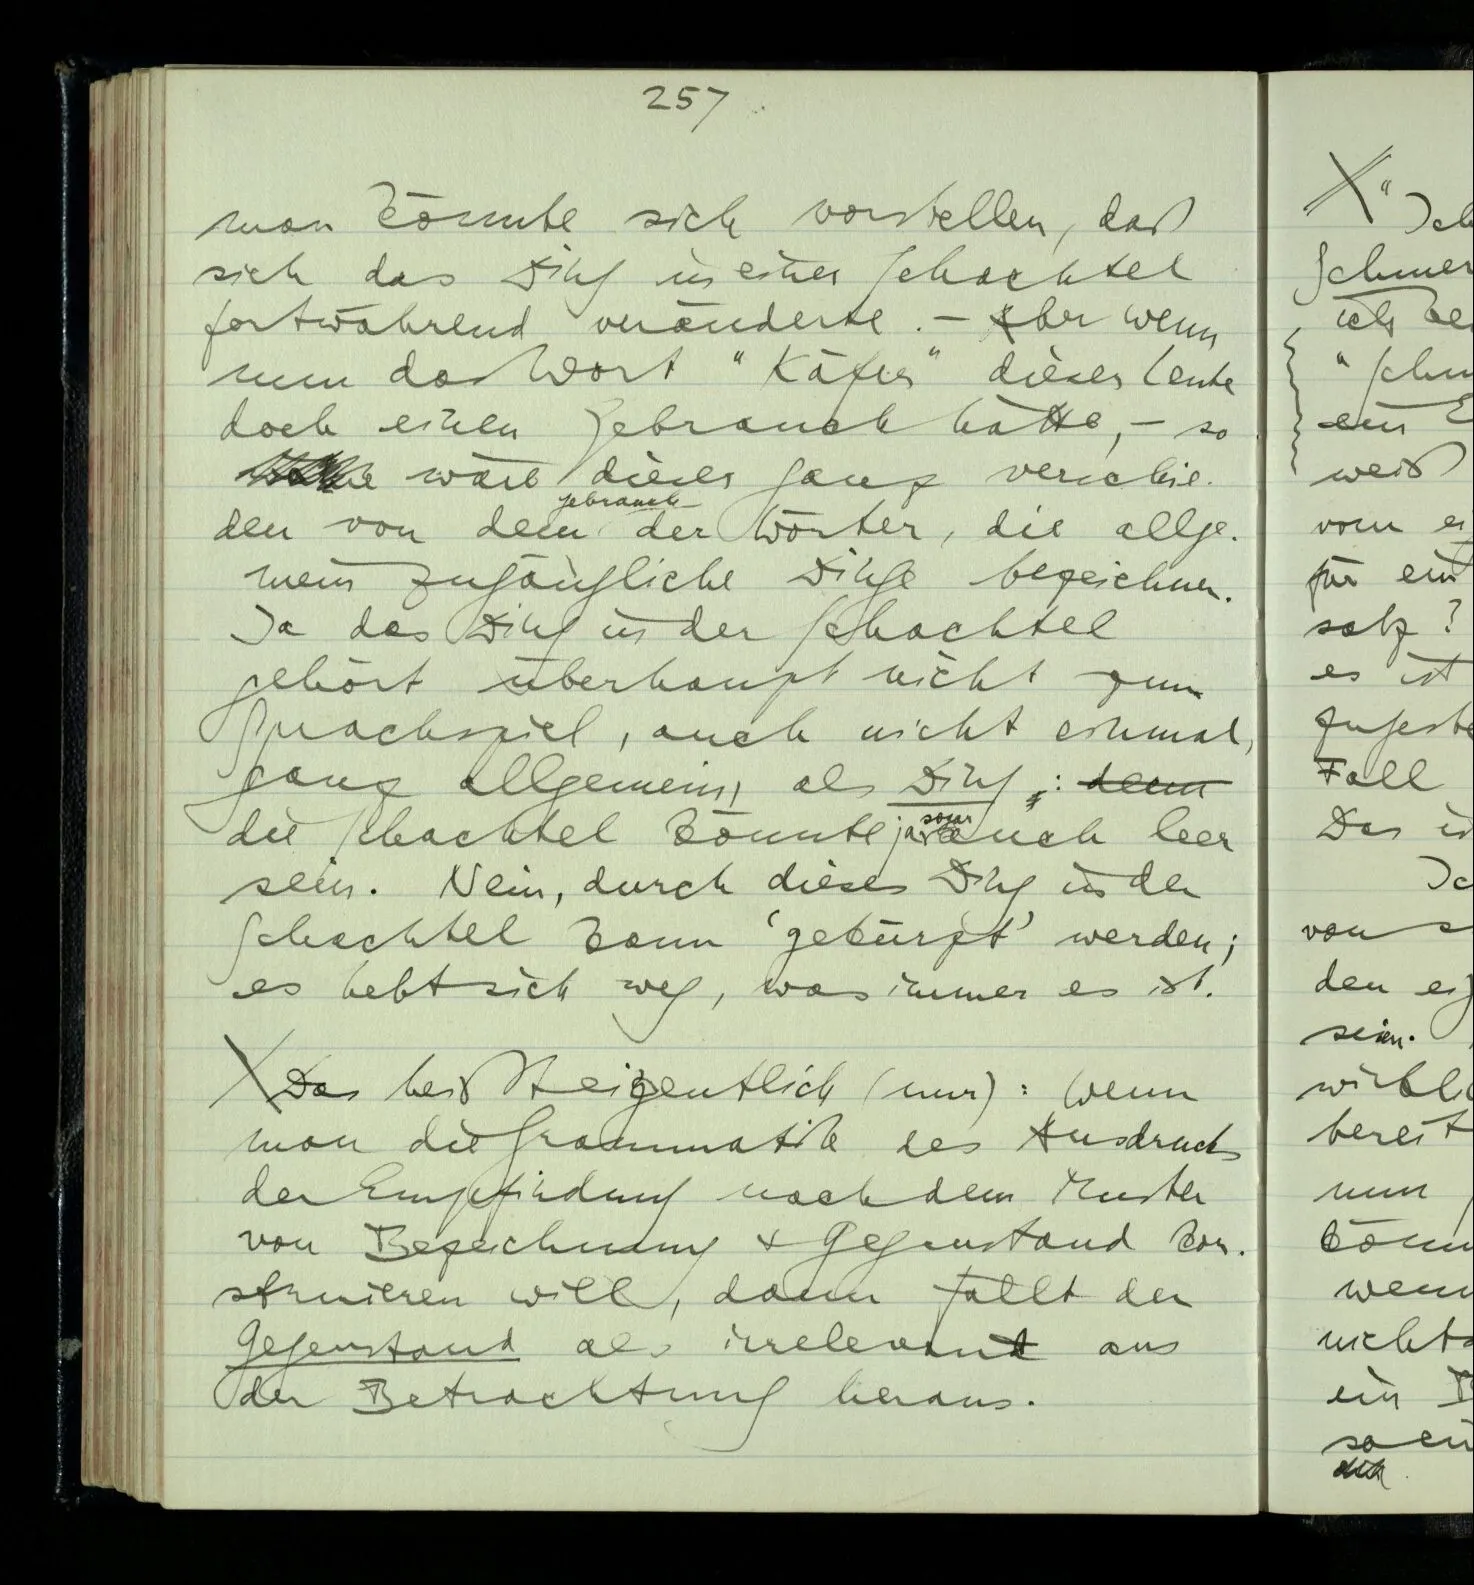 257
man könnte sich vorstellen, daß
sich das Ding in einer Schachtel
fortwährend veränderte. – Aber wenn
nun das Wort "Käfer" dieser Leute
doch einen Gebrauch hätte, – so
wäre dieser ganz verschie-
gebrauch
den von dem der Wörter, die allge-
mein zugängliche Dinge bezeichnen.
Ja das Ding in der Schachtel
gehört überhaupt nicht zum
Sprachspiel, auch nicht einmal,
ganz allgemein, als Ding: denn
sogar
die Schachtel könnte ja auch leer
sein. Nein, durch dieses Ding in der
Schachtel kann 'gekürzt' werden;
es hebt sich weg, was immer es ist.
Das heißt eigentlich (nur): Wenn
man die Grammatik des Ausdrucks
der Empfindung nach dem Muster
von Bezeichnung & Gegenstand kon-
struieren will, dann fällt der
Gegenstand als irrelevant aus
der Betrachtung heraus.
X "Ich
ich
"
ein
weiß
vom
für ein
satz?
es ist
Fall
Das
von
den
sein.
bereit
nun
wenn
nichts
ein
so